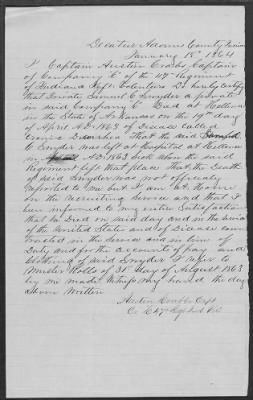 Decatur Adams County Indiana
January 15th 1864
I Captain Austin Crabbs Captain
of Company C of the 47th Regiment
of Indiana Inft. Volenteers Do hereby Certify
that Private Samuel C Snyder a private
in said Company C Died at Hellena
in the State of Arkansas on the 19th day
of April AD 1863 of Disease Called
Cronic Diarrhea That the said Samuel
C Snyder was left at Hospital at Hellena
in AD 1863 Sick when the said
Regiment left that place That the Death
of said Snyder was not officially
reported to me but I am at home
on the Recruiting Service and that I
been informed to my entire Satisfaction
that he Died on said day and in the Service
of the United States and of Disease con
tracted in the Service and in line of
Duty and for the accounts of pay and
Clothing of said Snyder I refer to
Muster Rolls of 31st day of August 1863
by me made Witness my hand the day
above Written
Austin Crabbs Capt
Co C 47th Regt Ind Vol